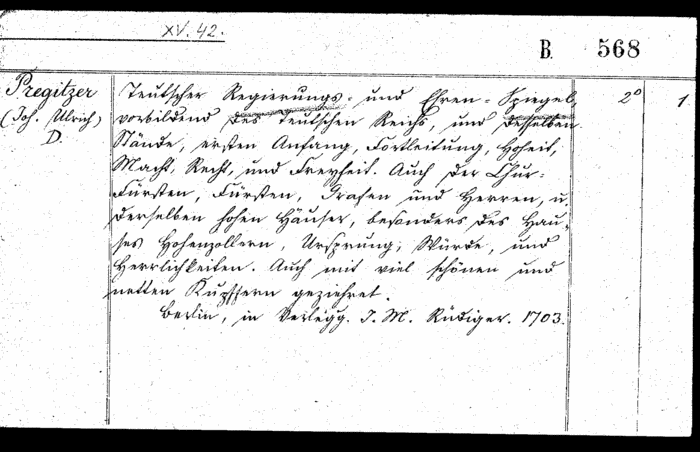 XV. 42.
B. 568
Pregitzer
(Joh. Ulrich)
D.
Teutscher Regierungs- und Ehren-Spiegel, 2° 1
vorbildend des Teutschen Reichs, und desselben
Stände, ersten Anfang, Fortleitung, Hoheit,
Macht, Recht, und Freyheit. Auch der Chur-
Fürsten, Fürsten, Grafen und Herren, u.
derselben hohen Häuser, besonders des Hau-
ses Hohenzollern, Ursprung, Würde, und
Herrlichkeiten. Auch mit viel schönen und
netten Kupffern geziehret.
Berlin, in Verlegg. J. M. Rüdiger. 1703.